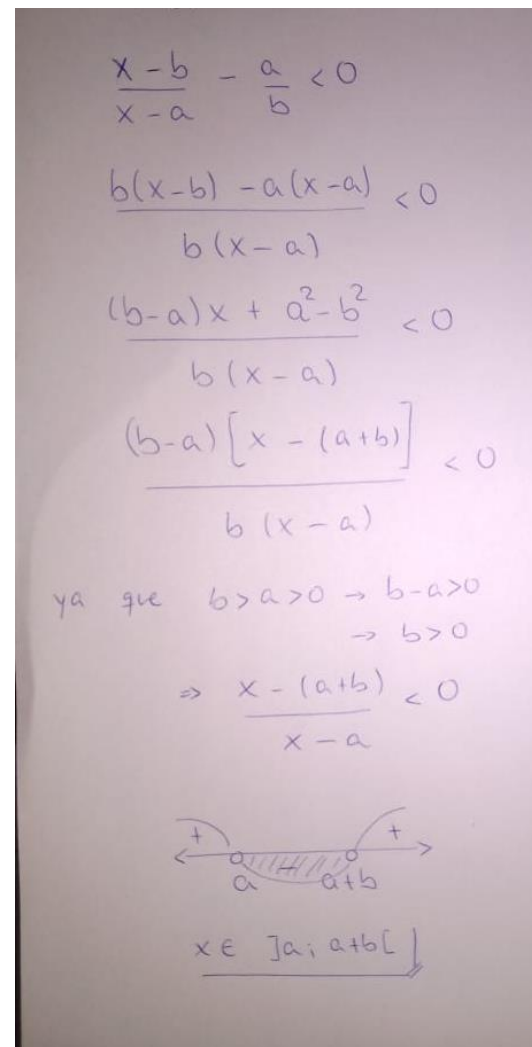 (x - b)/(x - a) - a/b < 0
(b(x-b) - a(x-a))/(b(x-a)) < 0
((b-a)x + a² - b²)/(b(x-a)) < 0
((b-a)[x - (a+b)])/(b(x-a)) < 0
ya que b>a>0 → b-a>0
→ b>0
⇒ (x - (a+b))/(x - a) < 0
+ - +
a a+b
x ∈ ]a; a+b[